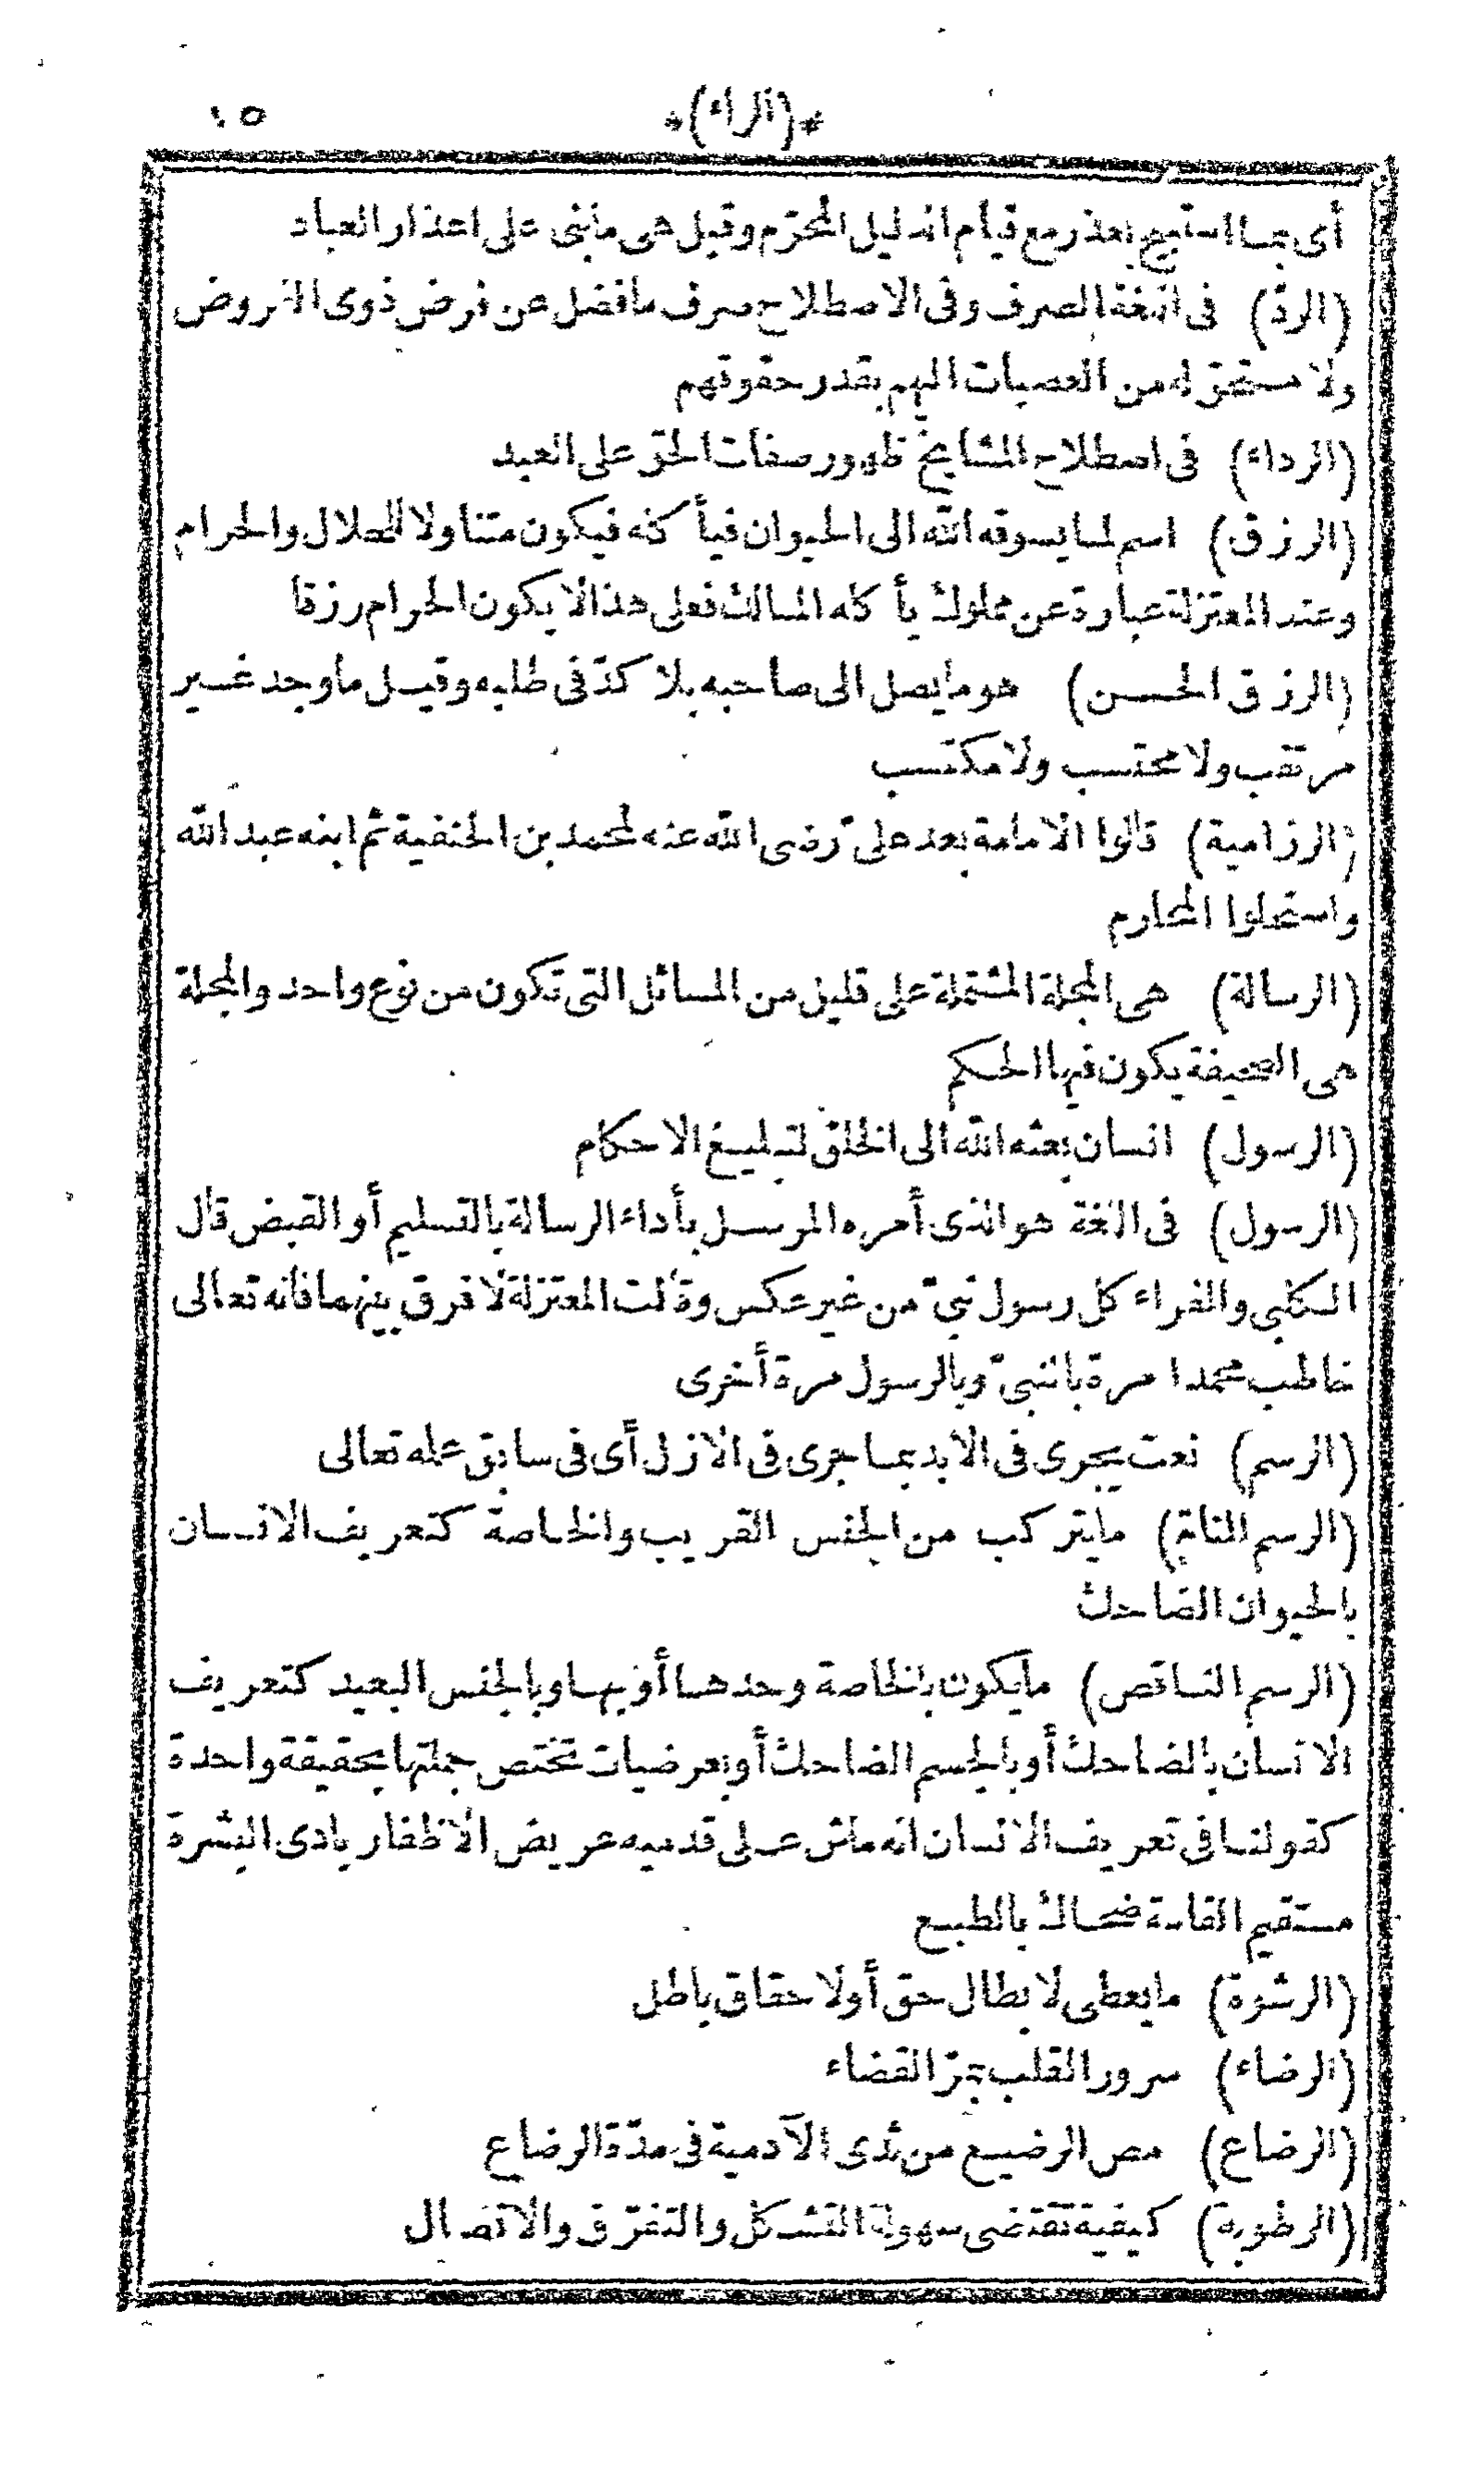 *(الراء)*
أى بما استبيح بعذر مع قيام الدليل المحرّم وقيل هى ما بنى على اعذار العباد
(الردّ) فى اللغة الصرف وفى الاصطلاح صرف ما فضل عن فرض ذوى الفروض
ولا مستحق له من العصبات اليهم بقدر حقوقهم
(الرداء) فى اصطلاح المشايخ ظهور صفات الحق على العبد
(الرزق) اسم لما يسوقه الله الى الحيوان فيأكله فيكون متناولا للحلال والحرام
وعند المعتزلة عبارة عن مملوك يأكله المالك فعلى هذا لا يكون الحرام رزقا
(الرزق الحسن) هو ما يصل الى صاحبه بلا كدّ فى طلبه وقيل ما وجد غير
مرتقب ولا محتسب ولا مكتسب
(الرزامية) قالوا الامامة بعد علىّ رضى الله عنه لمحمد بن الحنفية ثم ابنه عبد الله
واستحلوا المحارم
(الرسالة) هى المجلة المشتملة على قليل من المسائل التى تكون من نوع واحد والمجلة
هى الصحيفة يكون فيها الحكم
(الرسول) انسان بعثه الله الى الخلق لتبليغ الاحكام
(الرسول) فى اللغة هو الذى أمره المرسل بأداء الرسالة بالتسليم أو القبض قال
الكلبى والفراء كل رسول نبىّ من غير عكس وقالت المعتزلة لا فرق بينهما فانه تعالى
خاطب محمدا مرة بالنبىّ وبالرسول مرة أخرى
(الرسم) نعت يجرى فى الابد بما جرى فى الازل أى فى سابق علمه تعالى
(الرسم التامّ) ما يتركب من الجنس القريب والخاصة كتعريف الانسان
بالحيوان الضاحك
(الرسم الناقص) ما يكون بالخاصة وحدها أو بها وبالجنس البعيد كتعريف
الانسان بالضاحك أو بالجسم الضاحك أو بعرضيات تختص جملتها بحقيقة واحدة
كقولنا فى تعريف الانسان انه ماش على قدميه عريض الاظفار بادى البشرة
مستقيم القامة ضحاك بالطبع
(الرشوة) ما يعطى لابطال حق أو لاحقاق باطل
(الرضاء) سرور القلب بمرّ القضاء
(الرضاع) مص الرضيع من ثدى الآدمية فى مدّة الرضاع
(الرطوبة) كيفية تقتضى سهولة التشكل والتفرّق والاتصال